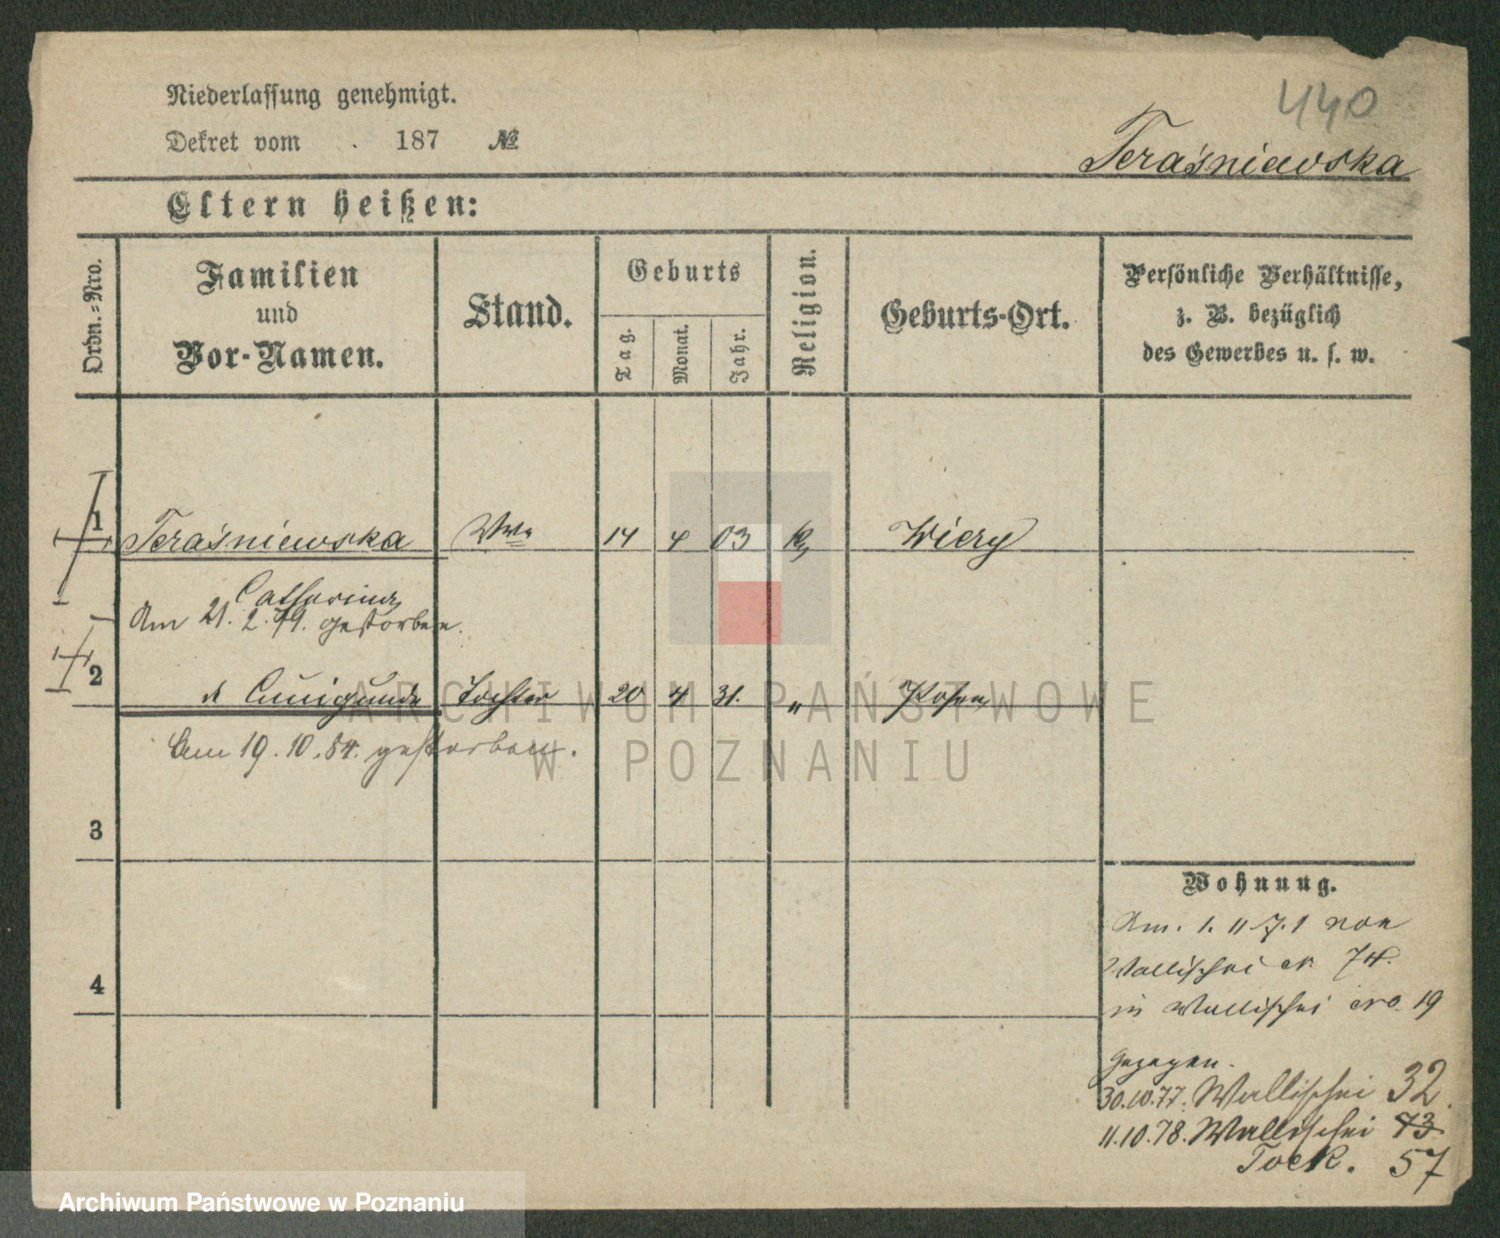 440
Niederlassung genehmigt.
Dekret vom . 187 №
Teraśniewska
Eltern heißen:
Ordn.-Nro.
Familien
und
Vor-Namen.
Stand.
Geburts
Tag.
Monat.
Jahr.
Religion.
Geburts-Ort.
Persönliche Verhältnisse,
z. B. bezüglich
des Gewerbes u. s. w.
1 Teraśniewska Wwe 14 4 03 K Wiery
Catharina
Am 21. 2. 79. gestorben.
2 Cunigunde Tochter 20 4 31. " Posen
Am 19. 10. 84. gestorben.
3
4
Wohnung.
Am. 1. 11 71 von
Wallischei 74.
in Wallischei No. 19
gezogen.
30.10.77. Wallischei 32
11.10.78. Wallischei 73
Tock. 57
ARCHIWUM PAŃSTWOWE
W POZNANIU
Archiwum Państwowe w Poznaniu